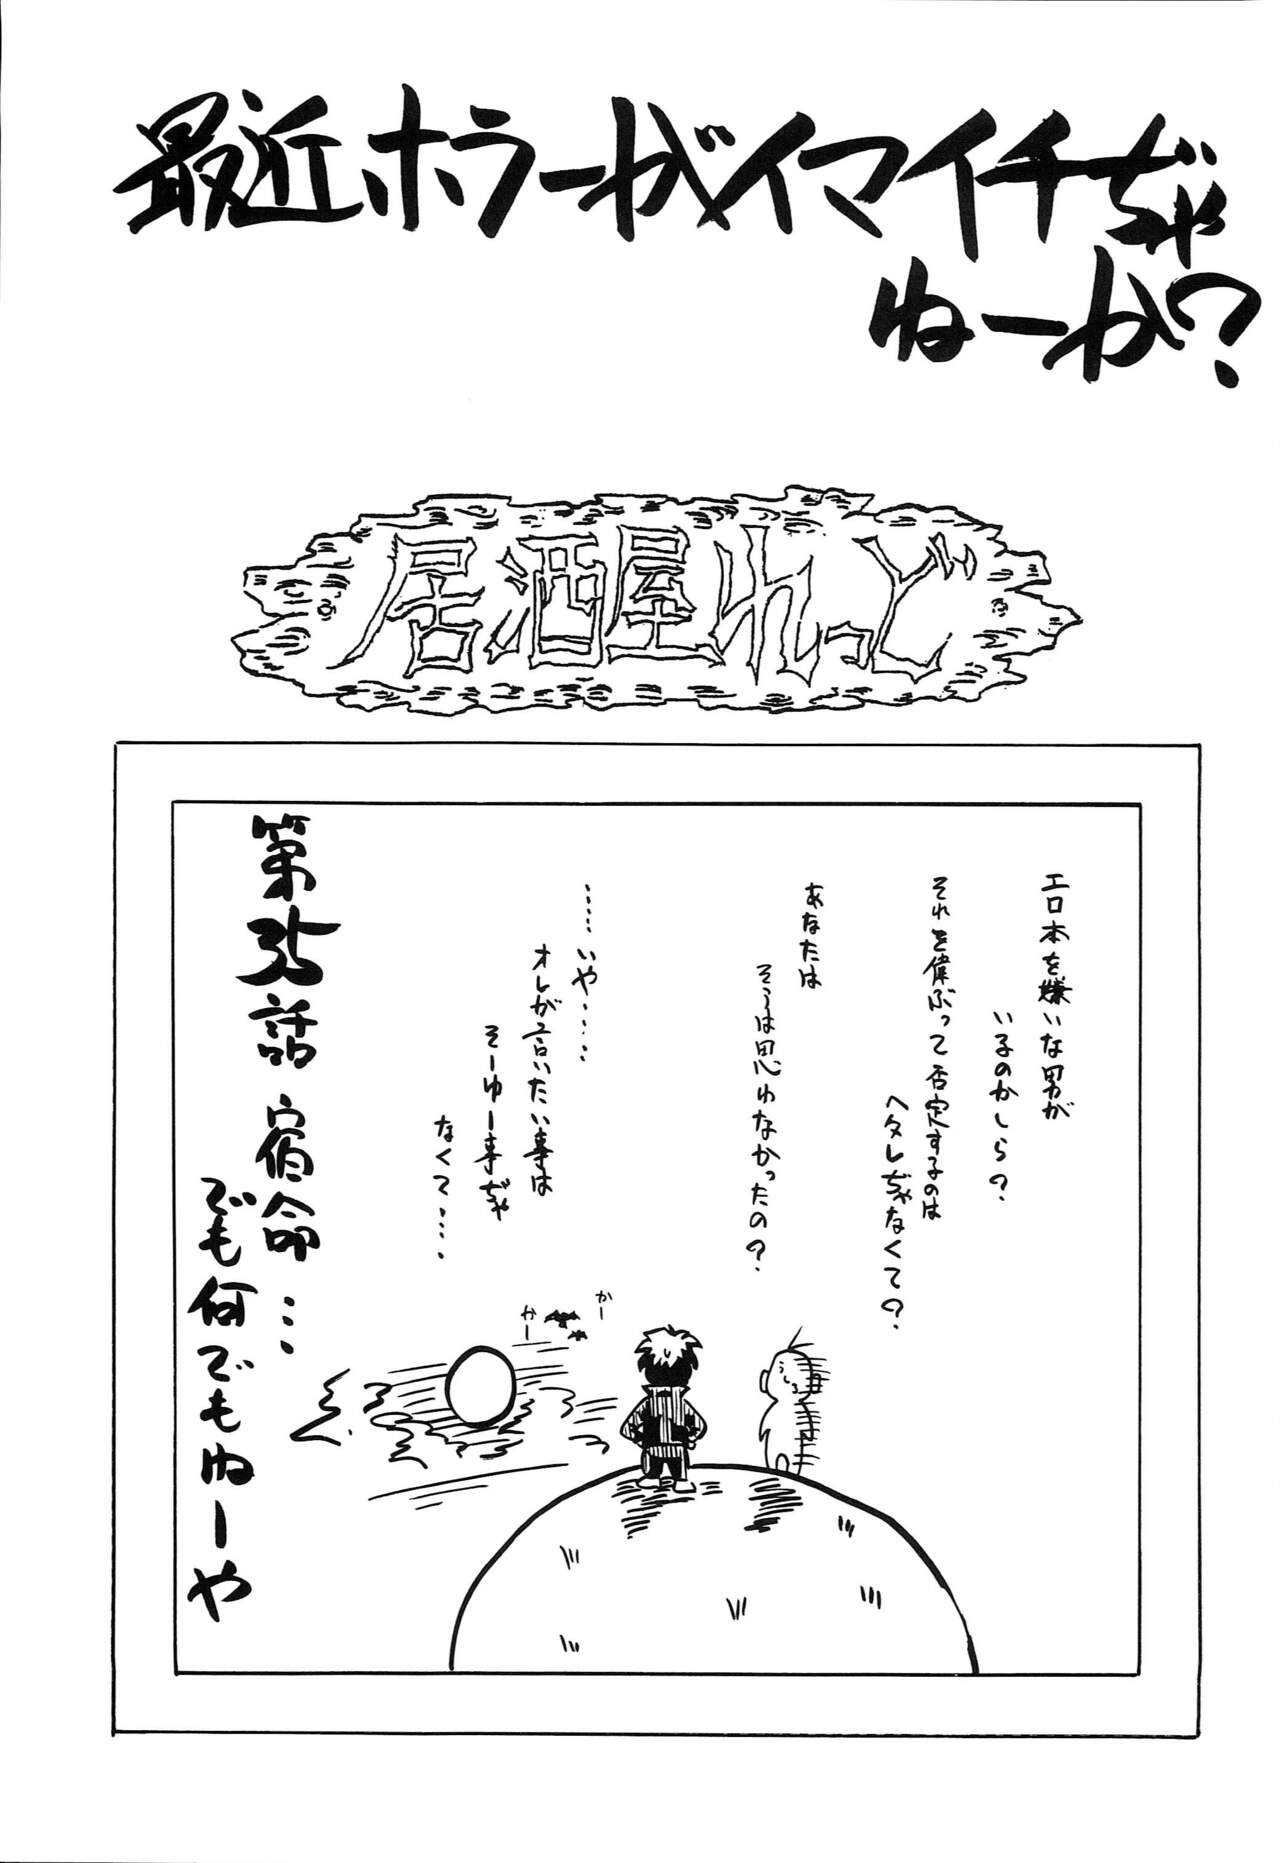 最近ホラーがイマイチぢゃ
ねーか?
居酒屋れっど
エロ本を嫌いな男が
いるのかしら?
それを偉ぶって否定するのは
ヘタレぢゃなくて?
あなたは
そうは思わなかったの?
……いや……
オレが言いたい事は
そーゆー事ぢゃ
なくて……
かー
かー
うしろ
第35話 宿命…
でも何でもねーや